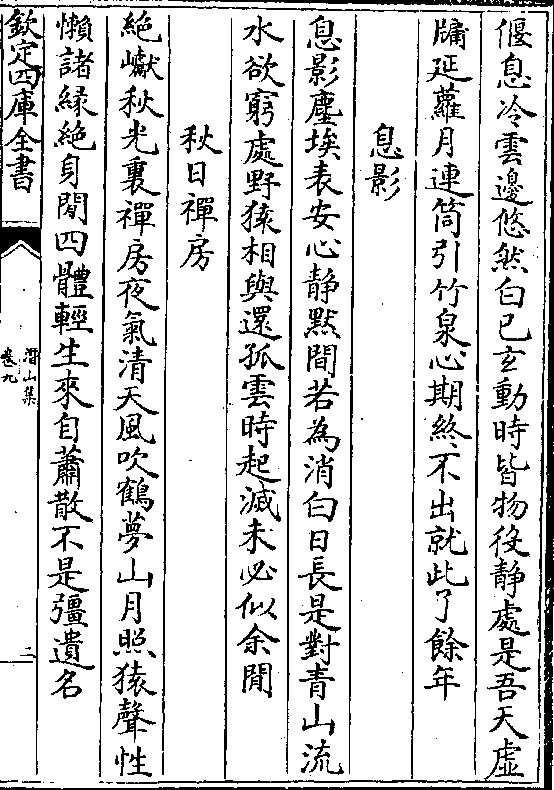 偃息冷雲邊悠然白已玄動時皆物役靜處是吾天虛
牗延蘿月連筒引竹泉心期終不出就此了餘年
息影
息影塵埃表安心静黙間若為消白日長是對青山流
水欲窮處野猿相與還孤雲時起滅未必似余閒
秋日禪房
絶巘秋光裏禪房夜氣清天風吹鶴夢山月照猿聲性
懶諸緣絶身閒四體輕生來自蕭散不是彊遺名
欽定四庫全書
潛山集
卷九
二